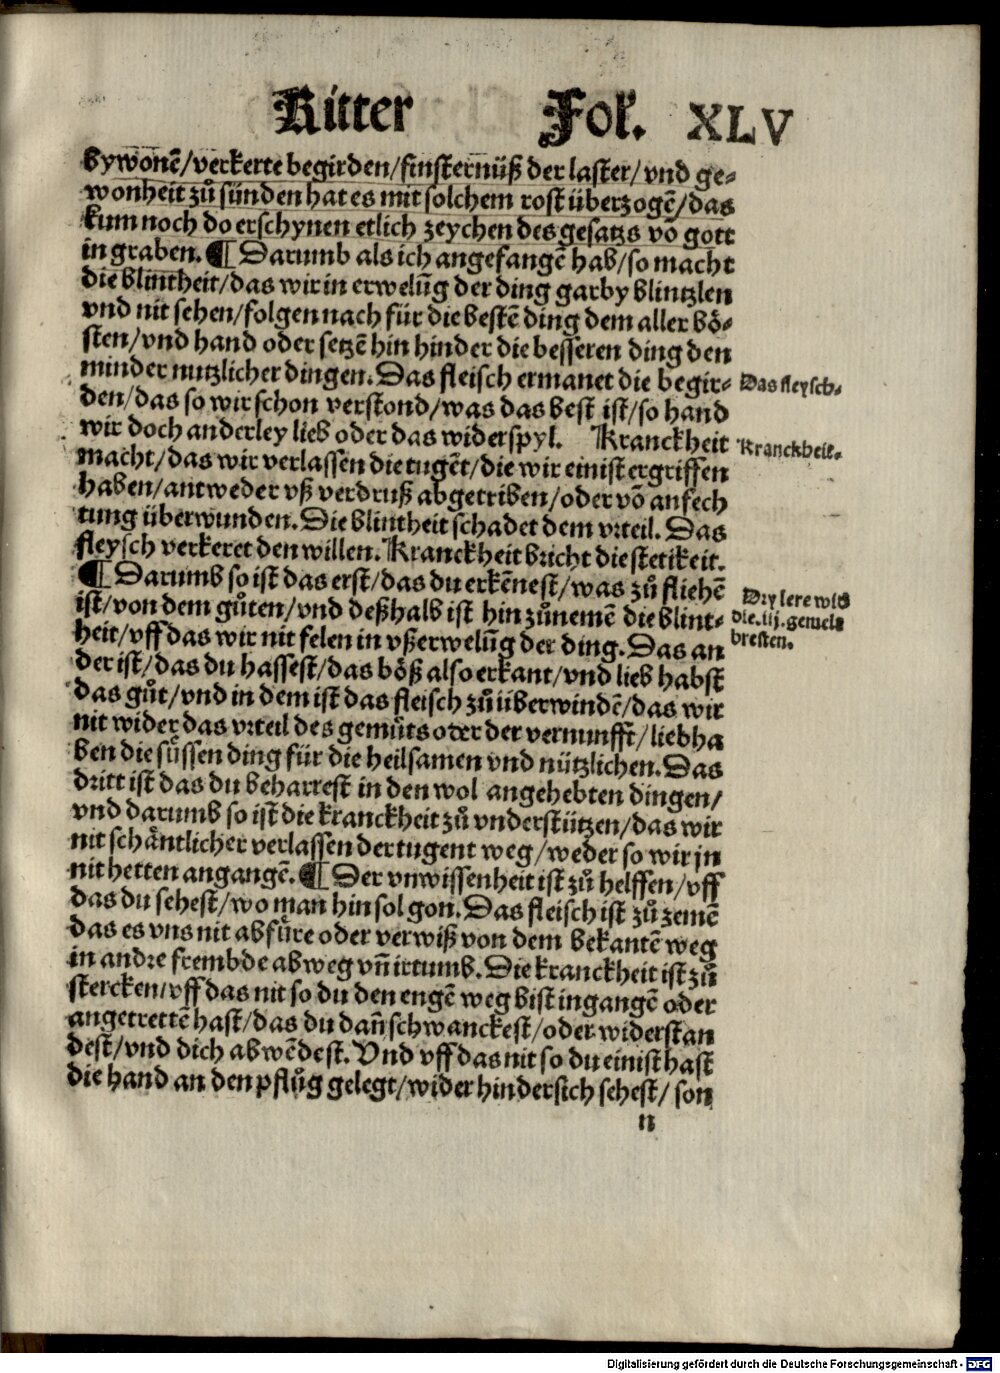 Ritter Fol. XLV
bywonẽ/verkerte begirden/finsternüß der laster/vnd ge-
wonheit zů sünden hat es mit solchem rost überzogẽ/das
kum noch do erschynen etlich zeychen des gesatzs vō gott
in graben. ¶ Darumb als ich angefangẽ hab/so macht
die blintheit/das wir in erwelũg der ding garby blintzlen
vnd nit sehen/folgen nach für die bestẽ ding dem aller bö-
sten/vnd hand oder setzẽ hin hinder die besseren ding den
minder nutzlicher dingen. Das fleisch ermanet die begir-
Das fleysch.
den/das so wir schon verstond/was das best ist/so hand
wir doch anderley lieb oder das widerspyl. Kranckheit
Kranckheit.
macht/das wir verlassen die tugẽt/die wir einist ergriffen
haben/antweder vß verdruß abgetriben/oder võ anfech
tung überwunden. Die blintheit schadet dem vrteil. Das
fleysch verkeret den willen. Kranckheit bricht die stetikeit.
¶ Darumb so ist das erst/das du erkẽnest/was zů fliehẽ
ist/von dem gůten/vnd deßhalb ist hin zůnemẽ die blint-
Dry lere wid
die .iij. gemele
bresten.
heit/vff das wir nit felen in vßerwelũg der ding. Das an
der ist/das du hassest/das böß also erkant/vnd lieb habst
das gůt/vnd in dem ist das fleisch zů überwindẽ/das wir
nit wider das vrteil des gemůts oder der vernunfft/liebha
ben die süssen ding für die heilsamen vnd nützlichen. Das
dritt ist das du beharrest in den wol angehebten dingen/
vnd darumb so ist die kranckheit zů vnderstützen/das wir
nit schäntlicher verlassen der tugent weg/weder so wir jn
nit hetten angangẽ. ¶ Der vnwissenheit ist zů helffen/vff
das du sehest/wo man hin sol gon. Das fleisch ist zů zemẽ
das es vns nit abfüre oder verwiß von dem bekantẽ weg
in andre frembde abweg vñ irtumb. Die kranckheit ist zů
stercken/vff das nit so du den engẽ weg bist ingangẽ oder
angetrettẽ hast/das du dañ schwanckest/oder widerstan
dest/vnd dich abwẽdest. Vnd vff das nit so du einist hast
die hand an den pflůg gelegt/wider hindersich sehest/ son
n
Digitalisierung gefördert durch die Deutsche Forschungsgemeinschaft - DFG